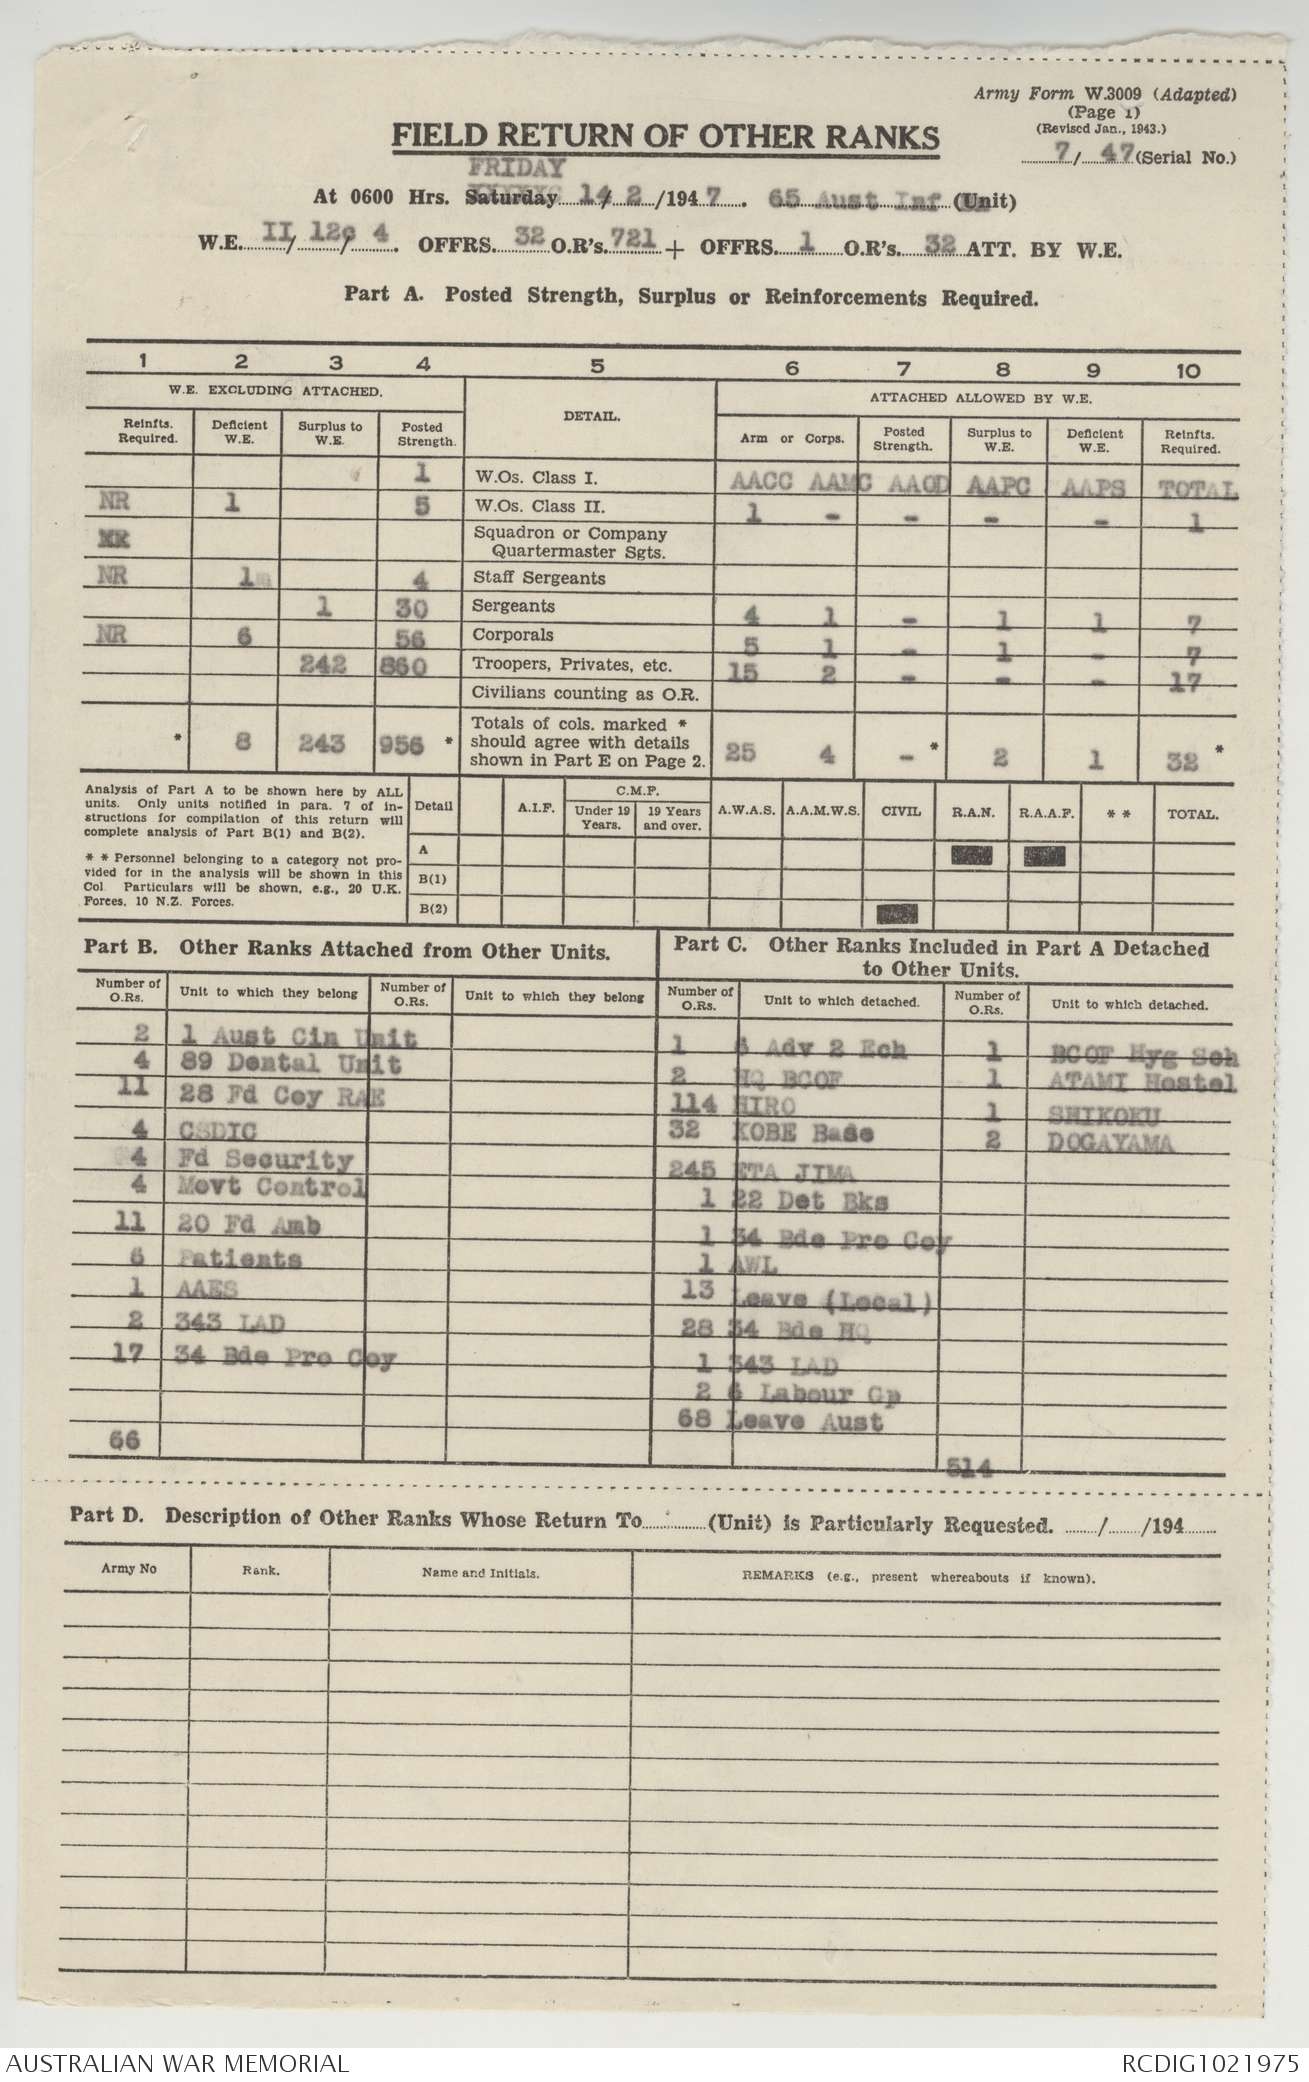 Army Form W.3009 (Adapted)
(Page 1)
(Revised Jan., 1943.)
7/ 47 (Serial No.)
FIELD RETURN OF OTHER RANKS
FRIDAY
At 0600 Hrs. Saturday 14/ 2 /194 7 . 65 Aust Inf (Unit)
W.E. II/ 12c/ 4 . OFFRS. 32 O.R's. 721 + OFFRS. 1 O.R's. 32 ATT. BY W.E.
Part A. Posted Strength, Surplus or Reinforcements Required.
1 2 3 4 5 6 7 8 9 10
W.E. EXCLUDING ATTACHED. DETAIL. ATTACHED ALLOWED BY W.E.
Reinfts. Required. Deficient W.E. Surplus to W.E. Posted Strength. Arm or Corps. Posted Strength. Surplus to W.E. Deficient W.E. Reinfts. Required.
1 W.Os. Class I. AACC AAMC AAOD AAPC AAPS TOTAL
NR 1 5 W.Os. Class II. 1 - - - - 1
NR Squadron or Company
Quartermaster Sgts.
NR 1 4 Staff Sergeants
1 30 Sergeants 4 1 - 1 1 7
NR 6 56 Corporals 5 1 - 1 - 7
242 860 Troopers, Privates, etc. 15 2 - - - 17
Civilians counting as O.R.
* 8 243 956 * Totals of cols. marked *
should agree with details
shown in Part E on Page 2. 25 4 - * 2 1 32 *
Analysis of Part A to be shown here by ALL
units. Only units notified in para. 7 of in-
structions for compilation of this return will
complete analysis of Part B(1) and B(2).
* * Personnel belonging to a category not pro-
vided for in the analysis will be shown in this
Col. Particulars will be shown, e.g., 20 U.K.
Forces, 10 N.Z. Forces.
Detail A.I.F. C.M.F. Under 19 Years. 19 Years and over. A.W.A.S. A.A.M.W.S. CIVIL R.A.N. R.A.A.F. * * TOTAL.
A
B(1)
B(2)
Part B. Other Ranks Attached from Other Units.
Number of O.Rs. Unit to which they belong Number of O.Rs. Unit to which they belong
2 1 Aust Cin Unit
4 89 Dental Unit
11 28 Fd Coy RAE
4 CSDIC
4 Fd Security
4 Movt Control
11 20 Fd Amb
6 Patients
1 AAES
2 343 LAD
17 34 Bde Pro Coy
66
Part C. Other Ranks Included in Part A Detached
to Other Units.
Number of O.Rs. Unit to which detached. Number of O.Rs. Unit to which detached.
1 6 Adv 2 Ech 1 BCOF Hyg Sch
2 HQ BCOF 1 ATAMI Hostel
114 HIRO 1 SHIKOKU
32 KOBE Base 2 DOGAYAMA
245 ETA JIMA
1 22 Det Bks
1 34 Bde Pro Coy
1 AWL
13 Leave (Local)
28 34 Bde HQ
1 343 LAD
2 6 Labour Gp
68 Leave Aust
514
Part D. Description of Other Ranks Whose Return To ......... (Unit) is Particularly Requested. ....../....../194......
Army No Rank. Name and Initials. REMARKS (e.g., present whereabouts if known).
AUSTRALIAN WAR MEMORIAL RCDIG1021975